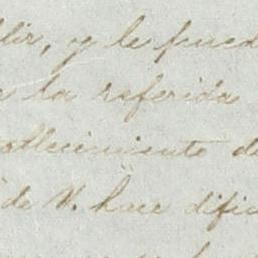 lir, y le pued
la referida
allecimiento de
de V. hace difi